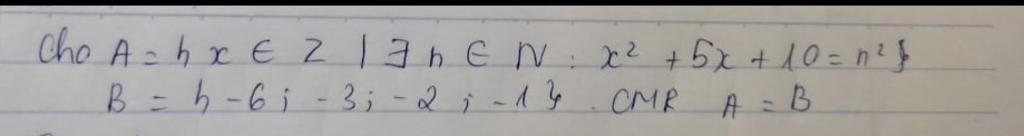 Cho A = { x ∈ Z | ∃ n ∈ N : x² + 5x + 10 = n² }
B = { -6 ; -3 ; -2 ; -1 } . CMR A = B